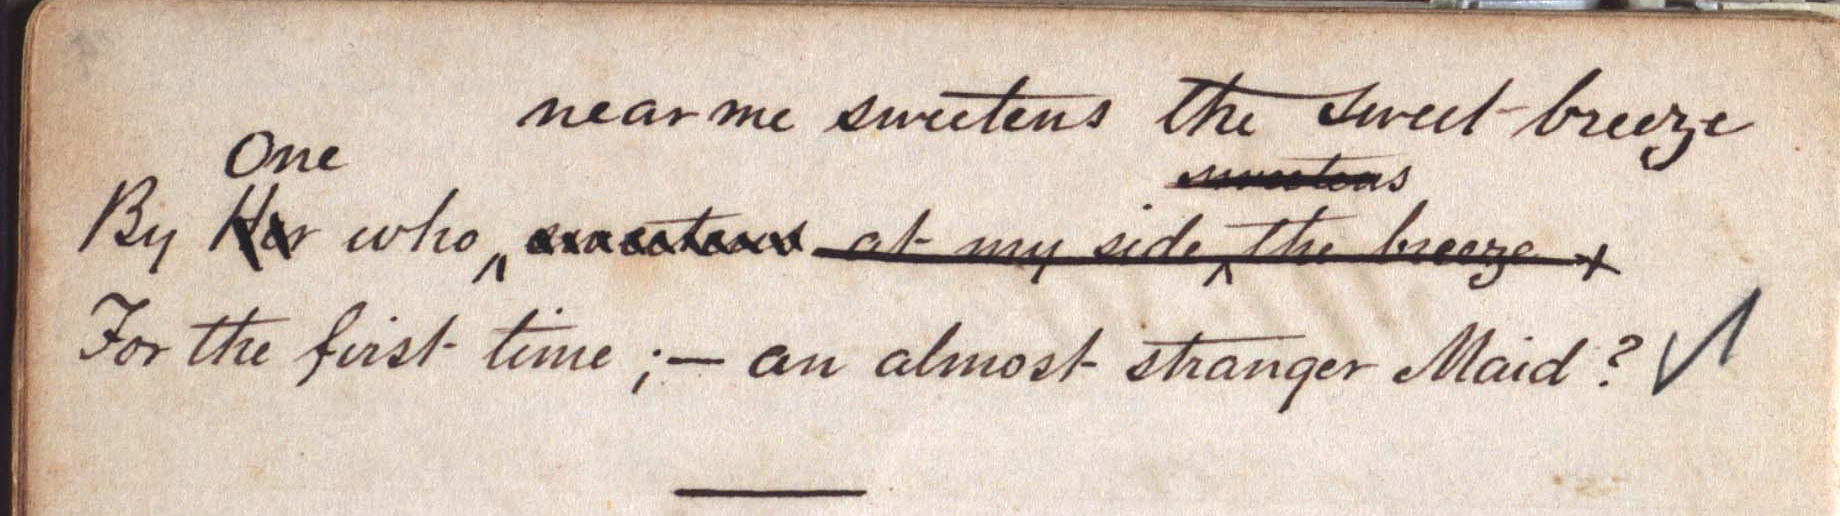 near me sweetens the sweet breeze
One
sweetens
By Her who sweetens at my side the breeze
For the first time ;— an almost stranger Maid ?